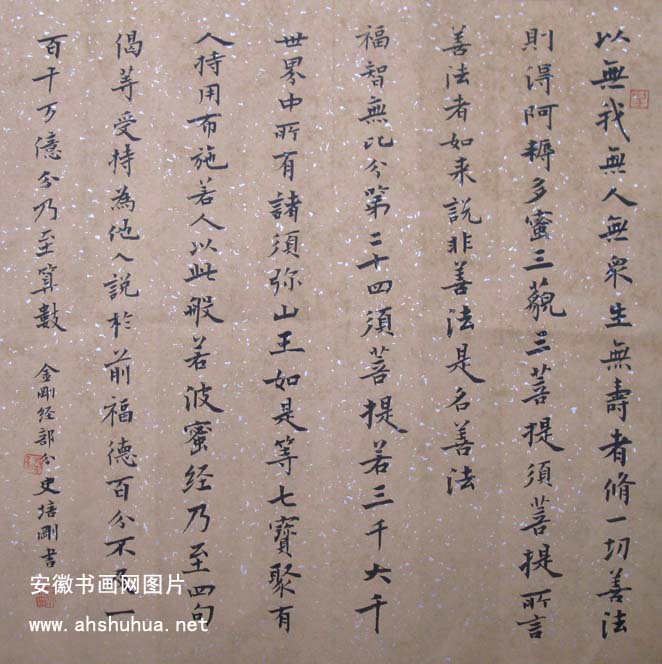 以無我無人無衆生無壽者脩一切善法
則得阿耨多蜜三藐三菩提須菩提所言
善法者如来說非善法是名善法
福智無比分第二十四須菩提若三千大千
世界中所有諸須弥山王如是等七寶聚有
人持用布施若人以此般若波蜜经乃至四句
偈等受持為他人說於前福德百分不及一
百千万億分乃至算數
金剛经部分史培剛書
安徽书画网图片
www.ahshuhua.net